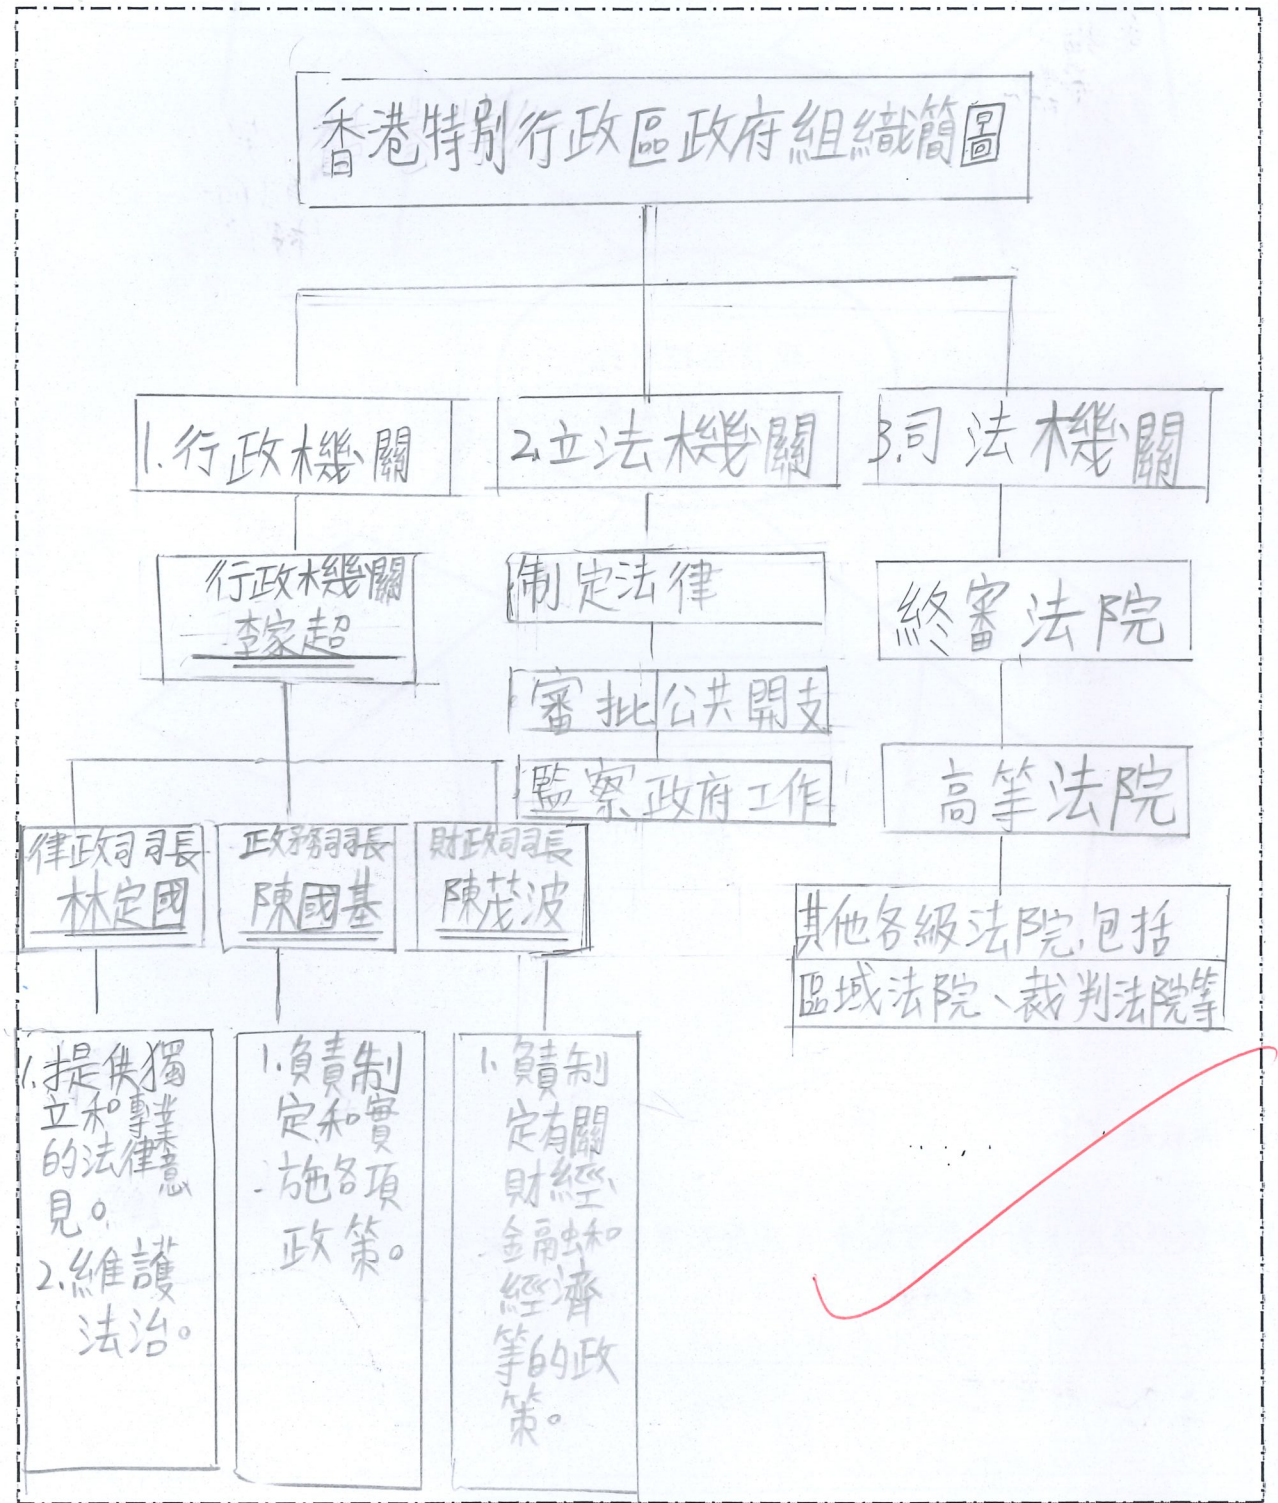 香港特別行政區政府組織簡圖
1.行政機關
2.立法機關
3.司法機關
行政機關
李家超
制定法律
審批公共開支
監察政府工作
終審法院
高等法院
其他各級法院,包括
區域法院、裁判法院等
律政司司長
林定國
政務司司長
陳國基
財政司司長
陳茂波
1.提供獨
立和專業
的法律意
見。
2.維護
法治。
1.負責制
定和實
施各項
政策。
1.負責制
定有關
財經、
金融和
經濟
等的政
策。